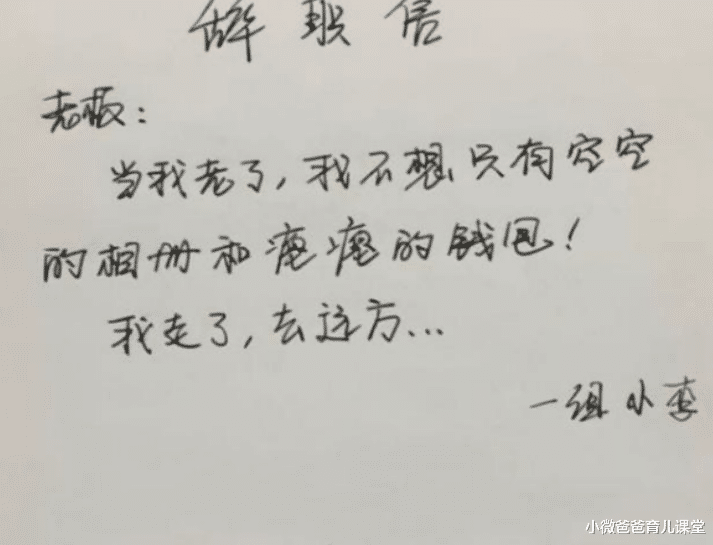 辞职信
老板：
当我老了，我不想只有空空
的相册和瘪瘪的钱包！
我走了，去远方...
一组小李
小微爸爸育儿课堂